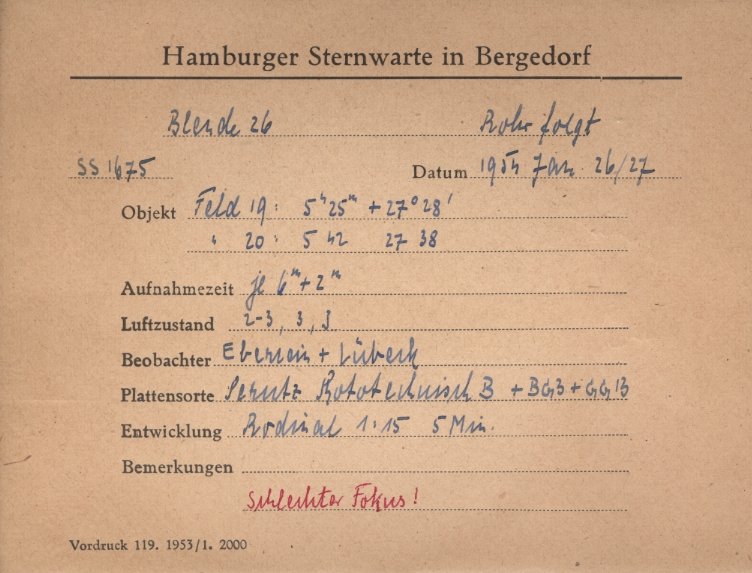 Hamburger Sternwarte in Bergedorf
Blende 26 Rohr folgt
SS 1675 Datum 1954 Jan. 26/27
Objekt Feld 19: 5ʰ25ᵐ +27°28'
" 20: 5 42 27 38
Aufnahmezeit je 6ᵐ+2ᵐ
Luftzustand 2-3, 3, 3
Beobachter + Lübeck
Plattensorte Perutz B + BG3 + GG13
Entwicklung Rodinal 1:15 5 Min.
Bemerkungen
Schlechter Fokus!
Vordruck 119. 1953/1. 2000